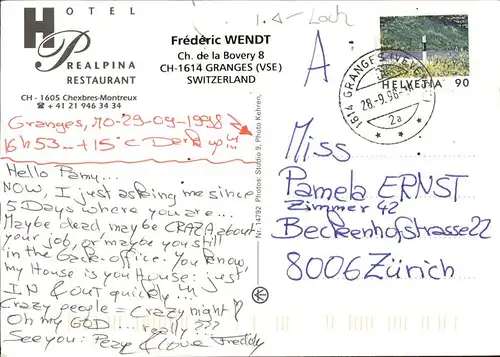 HOTEL
PREALPINA
RESTAURANT
CH - 1605 Chexbres-Montreux
☎ + 41 21 946 34 34
Frédéric WENDT
Ch. de la Bovery 8
CH-1614 GRANGES (VSE)
SWITZERLAND
Loch
A
HELVETIA 90
1614 GRANGES (VEVEYSE)
28.-9.98-
2a
Granges, 10-29-09-1998
16h53 - +15°C
Hello Pamy...
NOW, I just asking me since
5 Days where you are...
Maybe dead, maybe CRAZY about
your job, or maybe you still
in the Back-office. You know,
my House is you House: just
IN & OUT quickly...
Crazy people = Crazy night!
Oh my GOD... really ???
See you: Pezy & Love Freddy
Nr. 14792 Photos: Studio 9, Photo Kehren,
Miss
Pamela ERNST
Zimmer 42
Beckenhofstrasse 22
8006 Zürich